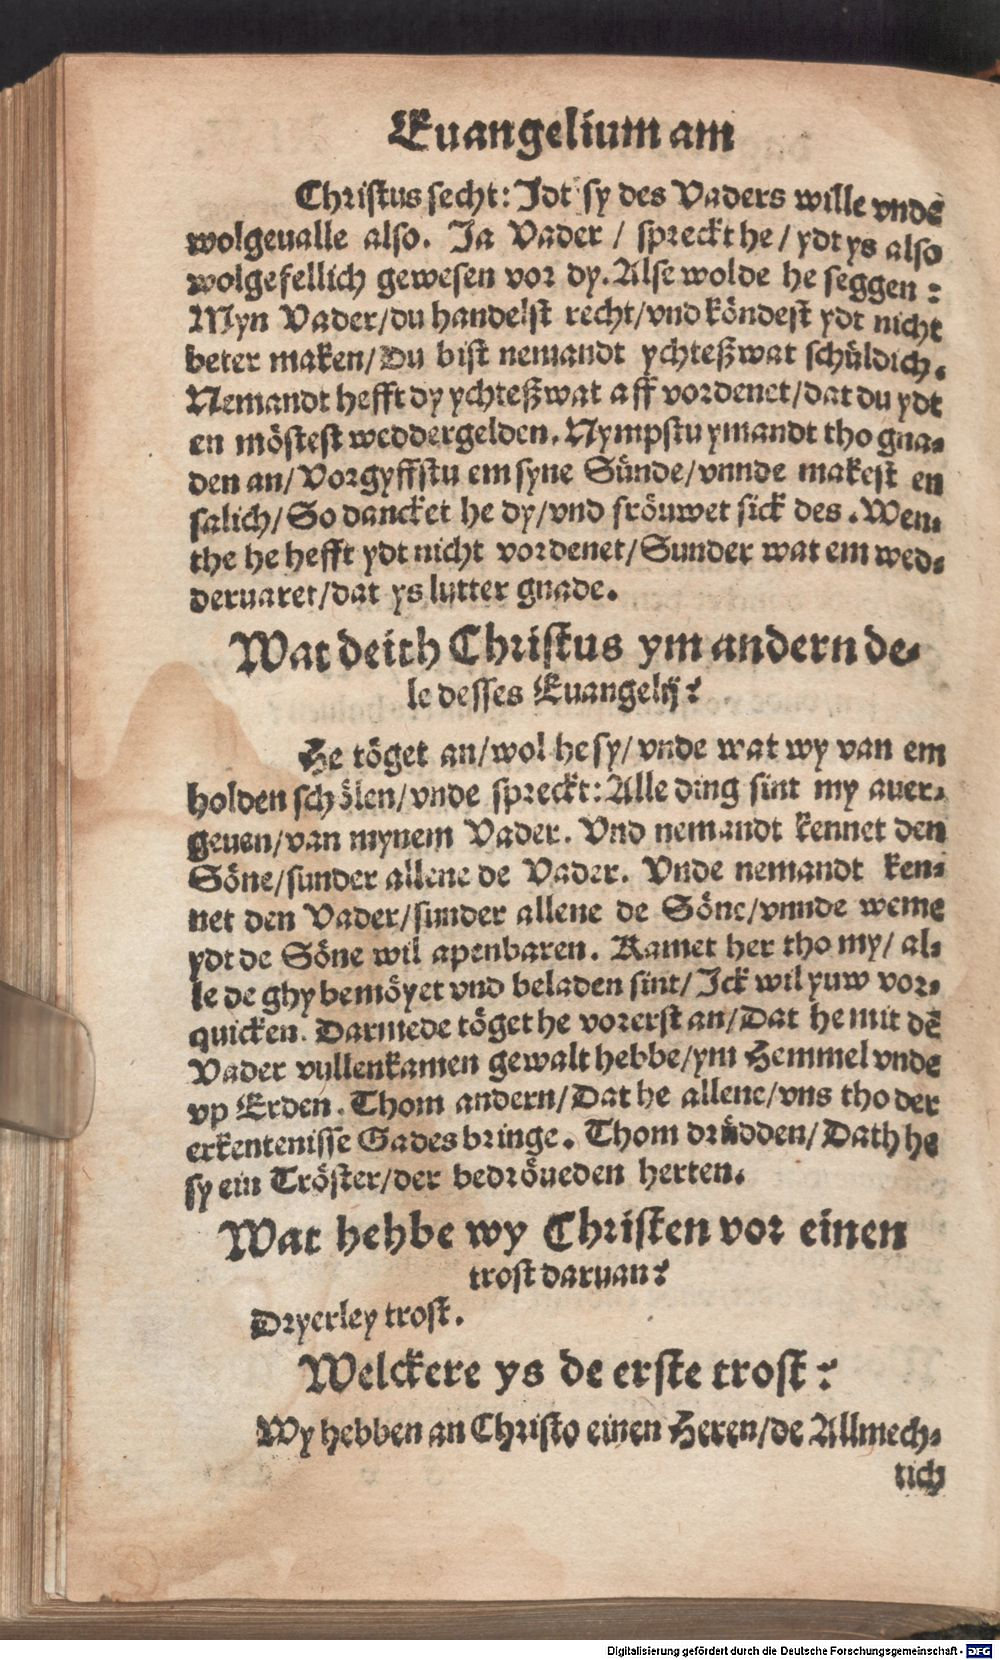 Euangelium am
Christus secht: Jdt sy des Vaders wille vnde
wolgeualle also. Ja Vader / spreckt he / ydt ys also
wolgefellich gewesen vor dy. Alse wolde he seggen:
Myn Vader/du handelst recht/vnd köndest ydt nicht
beter maken/Du bist nemandt ychteßwat schüldich.
Nemandt hefft dy ychteßwat aff vordenet/dat du ydt
en möstest weddergelden. Nympstu ymandt tho gna-
den an/Vorgyffstu em syne Sünde/vnnde makest en
salich/So dancket he dy/vnd fröuwet sick des. Wen-
the he hefft ydt nicht vordenet/Sunder wat em wed-
deruaret/dat ys lutter gnade.
Wat deith Christus ym andern de-
le desses Euangelij?
He töget an/wol he sy/vnde wat wy van em
holden schölen/vnde spreckt: Alle ding sint my auer-
geuen/van mynem Vader. Vnd nemandt kennet den
Söne/sunder allene de Vader. Vnde nemandt ken-
net den Vader/sunder allene de Söne/vnnde weme
ydt de Söne wil apenbaren. Kamet her tho my/ al-
le de ghy bemöyet vnd beladen sint/Jck wil yuw vor-
quicken. Darmede töget he vorerst an/Dat he mit dē
Vader vullenkamen gewalt hebbe/ym Hemmel vnde
vp Erden. Thom andern/Dat he allene/vns tho der
erkentenisse Gades bringe. Thom drüdden/Dath he
sy ein Tröster/der bedröueden herten.
Wat hehbe wy Christen vor einen
trost daruan?
Dryerley trost.
Welckere ys de erste trost?
Wy hebben an Christo einen Heren/de Allmech-
tich
Digitalisierung gefördert durch die Deutsche Forschungsgemeinschaft - DFG